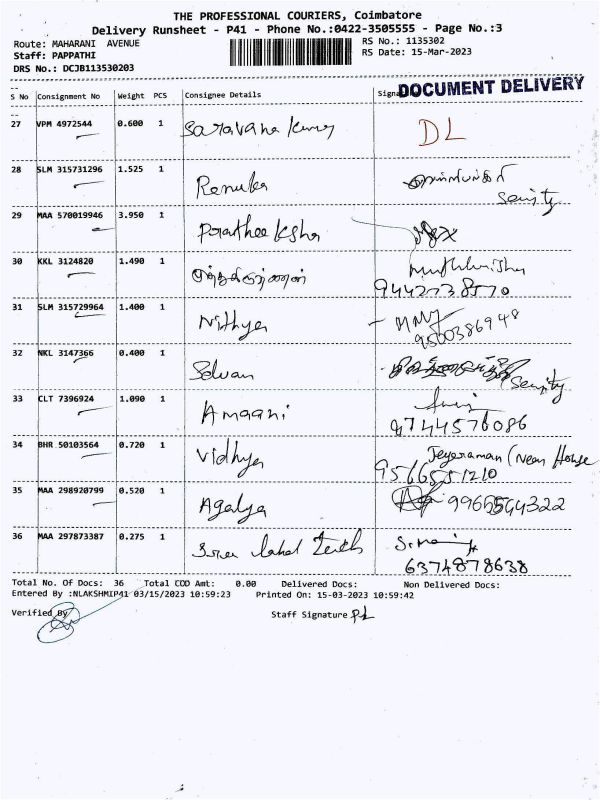 THE PROFESSIONAL COURIERS, Coimbatore
Delivery Runsheet - P41 - Phone No.:0422-3505555 - Page No.:3
Route: MAHARANI AVENUE RS No.: 1135302
Staff: PAPPATHI RS Date: 15-Mar-2023
DRS No.: DCJB113530203
DOCUMENT DELIVERY
S No Consignment No Weight PCS Consignee Details
27 VPM 4972544 0.600 1 Saravana Kumar DL
28 SLM 315731296 1.525 1 Renuka
29 MAA 570019946 3.950 1
30 KKL 3124820 1.490 1
9442738570
31 SLM 315729964 1.400 1 Nithya
9500386948
32 NKL 3147366 0.400 1 Selvan
33 CLT 7396924 1.090 1 Amaani
9744576086
34 BHR 50103564 0.720 1 Vidhya Jeyaraman (Near House
9566551210
35 MAA 298920799 0.520 1 Agalya
36 MAA 297873387 0.275 1
6374878638
Total No. Of Docs: 36 Total COD Amt: 0.00 Delivered Docs: Non Delivered Docs:
Entered By :NLAKSHMIP41 03/15/2023 10:59:23 Printed On: 15-03-2023 10:59:42
Verified By Staff Signature